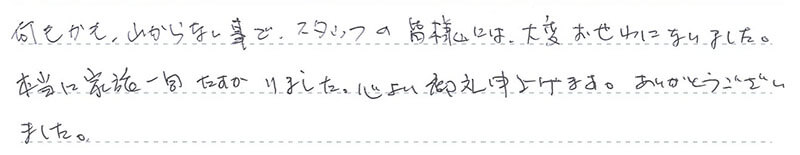 何もかも、わからない事で、スタッフの皆様には、大変おせわになりました。
本当に家族一同たすかりました。心より御礼申上げます。ありがとうござい
ました。